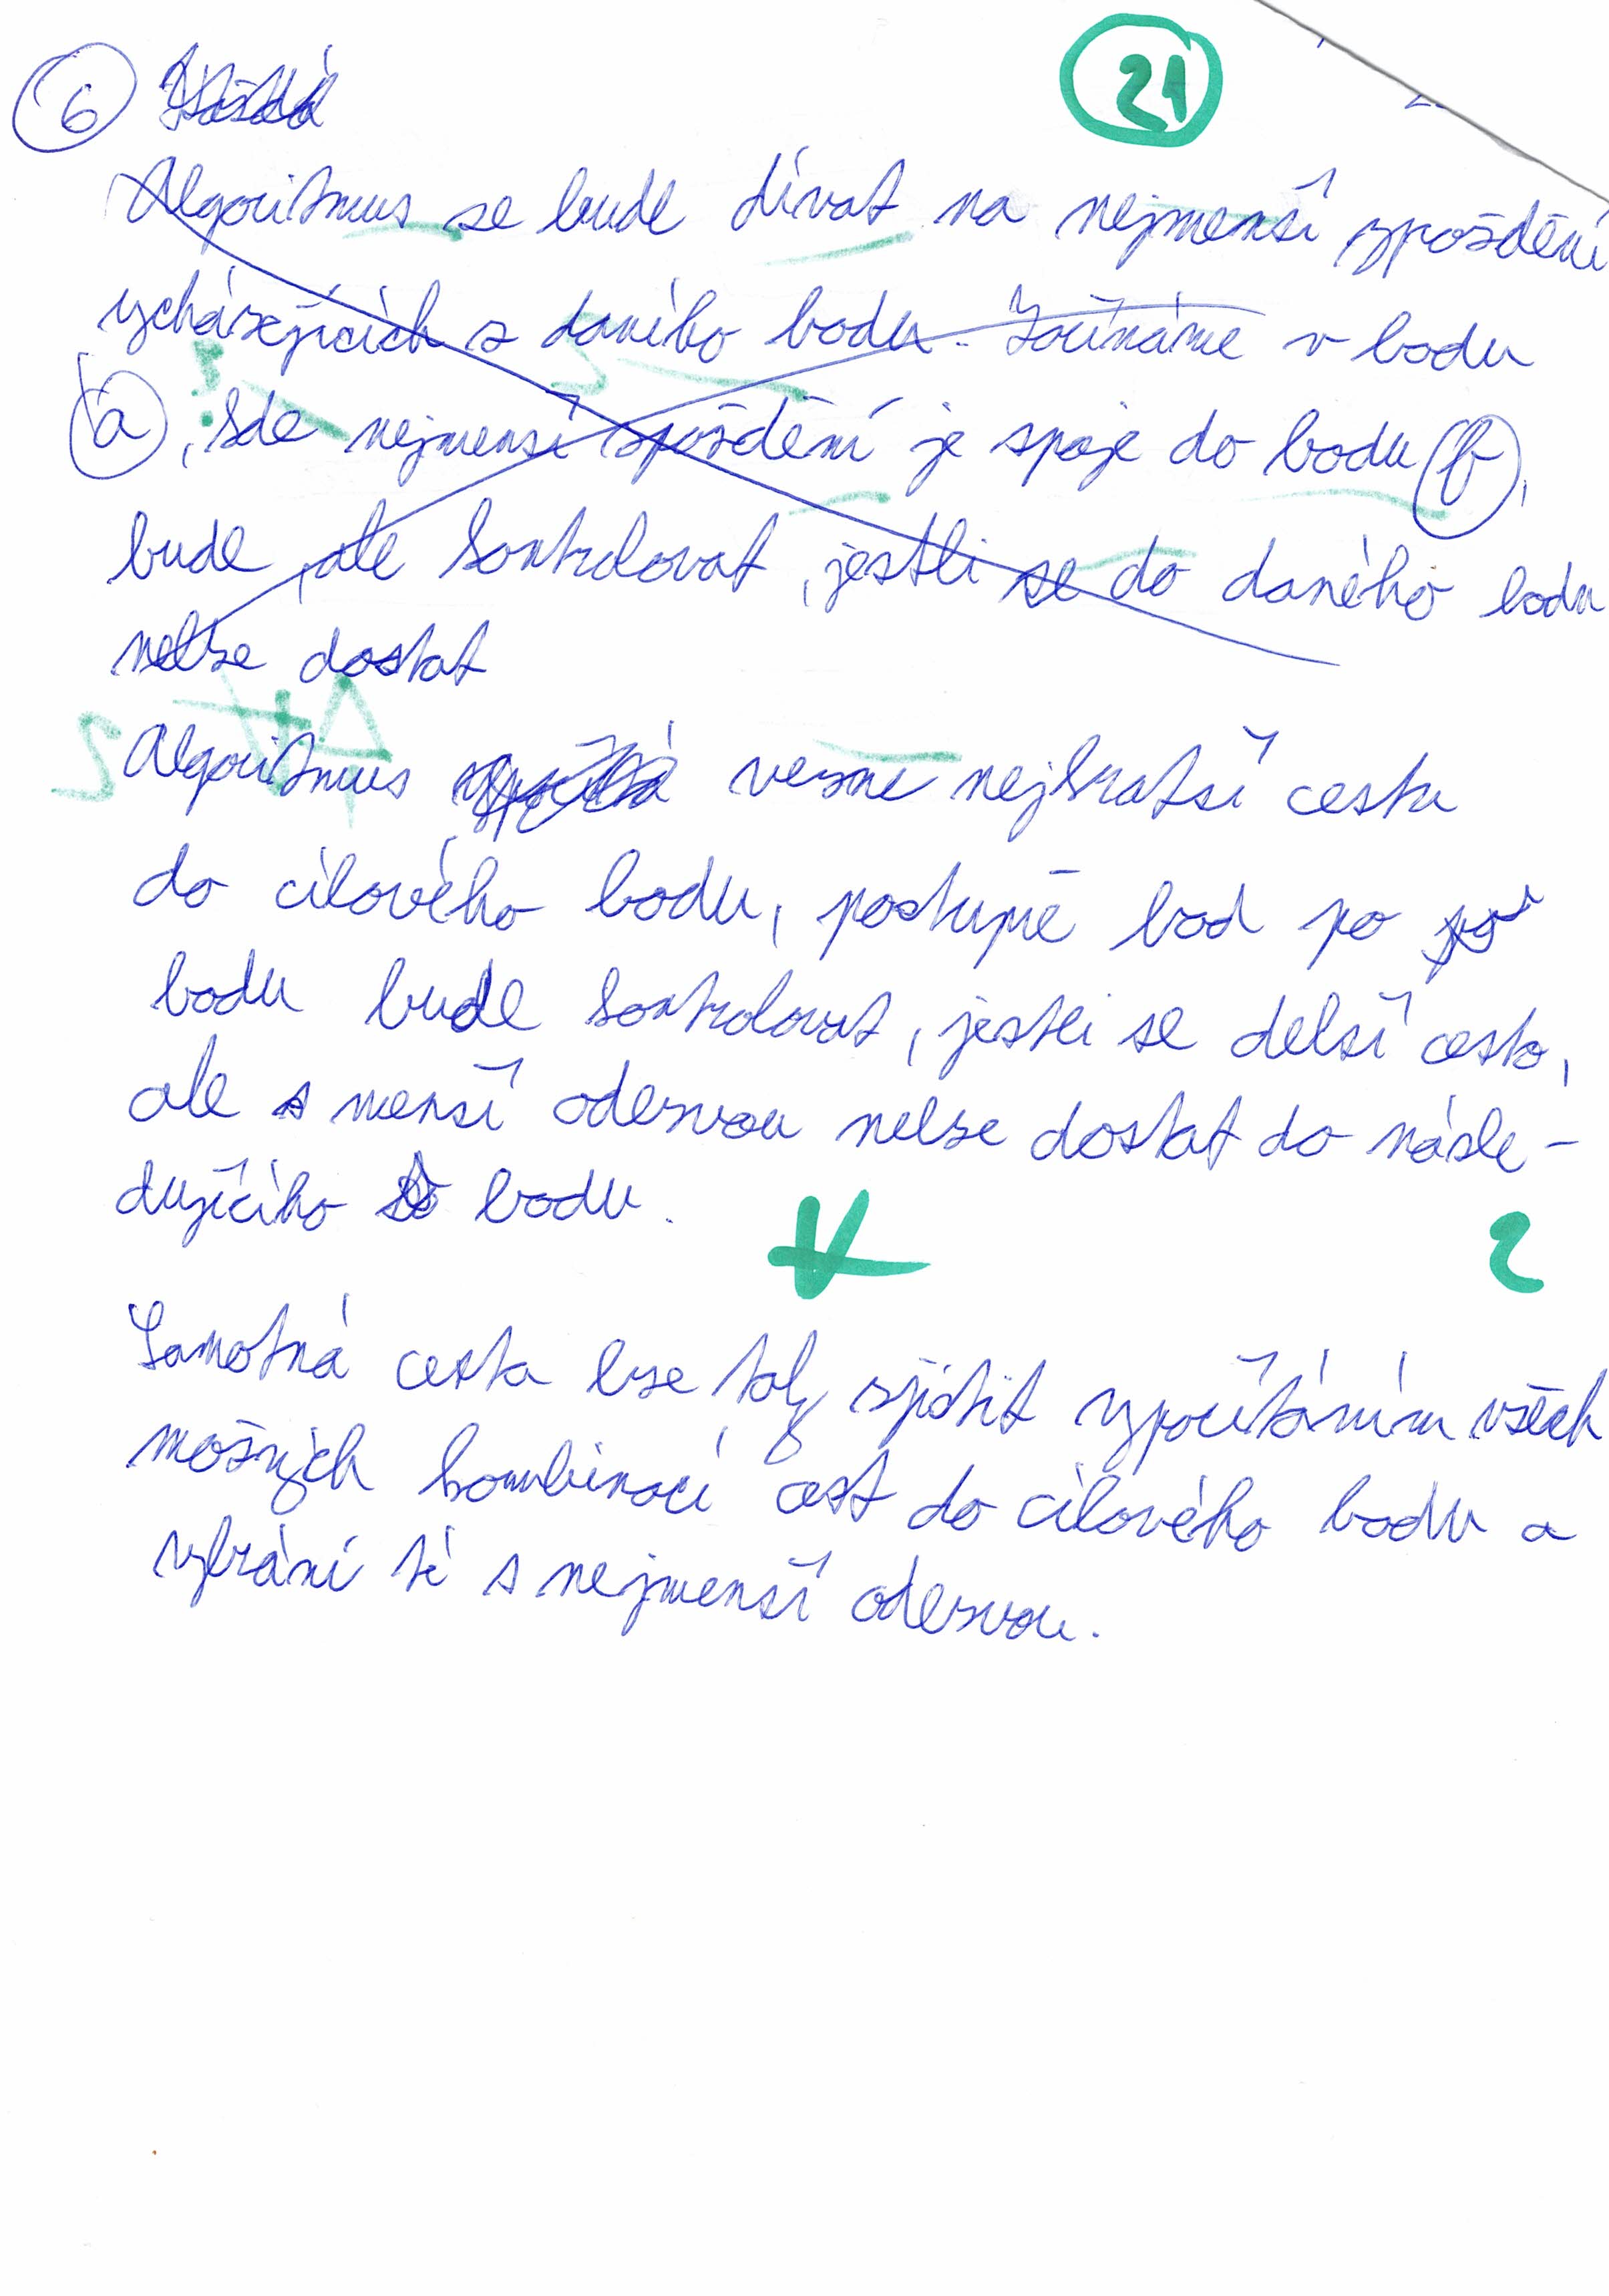 6
21
Algoritmus se bude dívat na nejmenší zpoždění
vycházejících z daného bodu. Začínáme v bodu
a, kde nejmenší zpoždění je spoje do bodu f,
bude, ale kontrolovat, jestli se do daného bodu
nelze dostat
Algoritmus vezme nejkratší cestu
do cílového bodu, postupně bod po
bodu bude kontrolovat, jestli se delší cestou,
ale s menší odezvou nelze dostat do násle-
dujícího bodu.
2
Samotná cesta lze taky zjistit vypočítáním všech
možných kombinací cest do cílového bodu a
vybrání té s nejmenší odezvou.